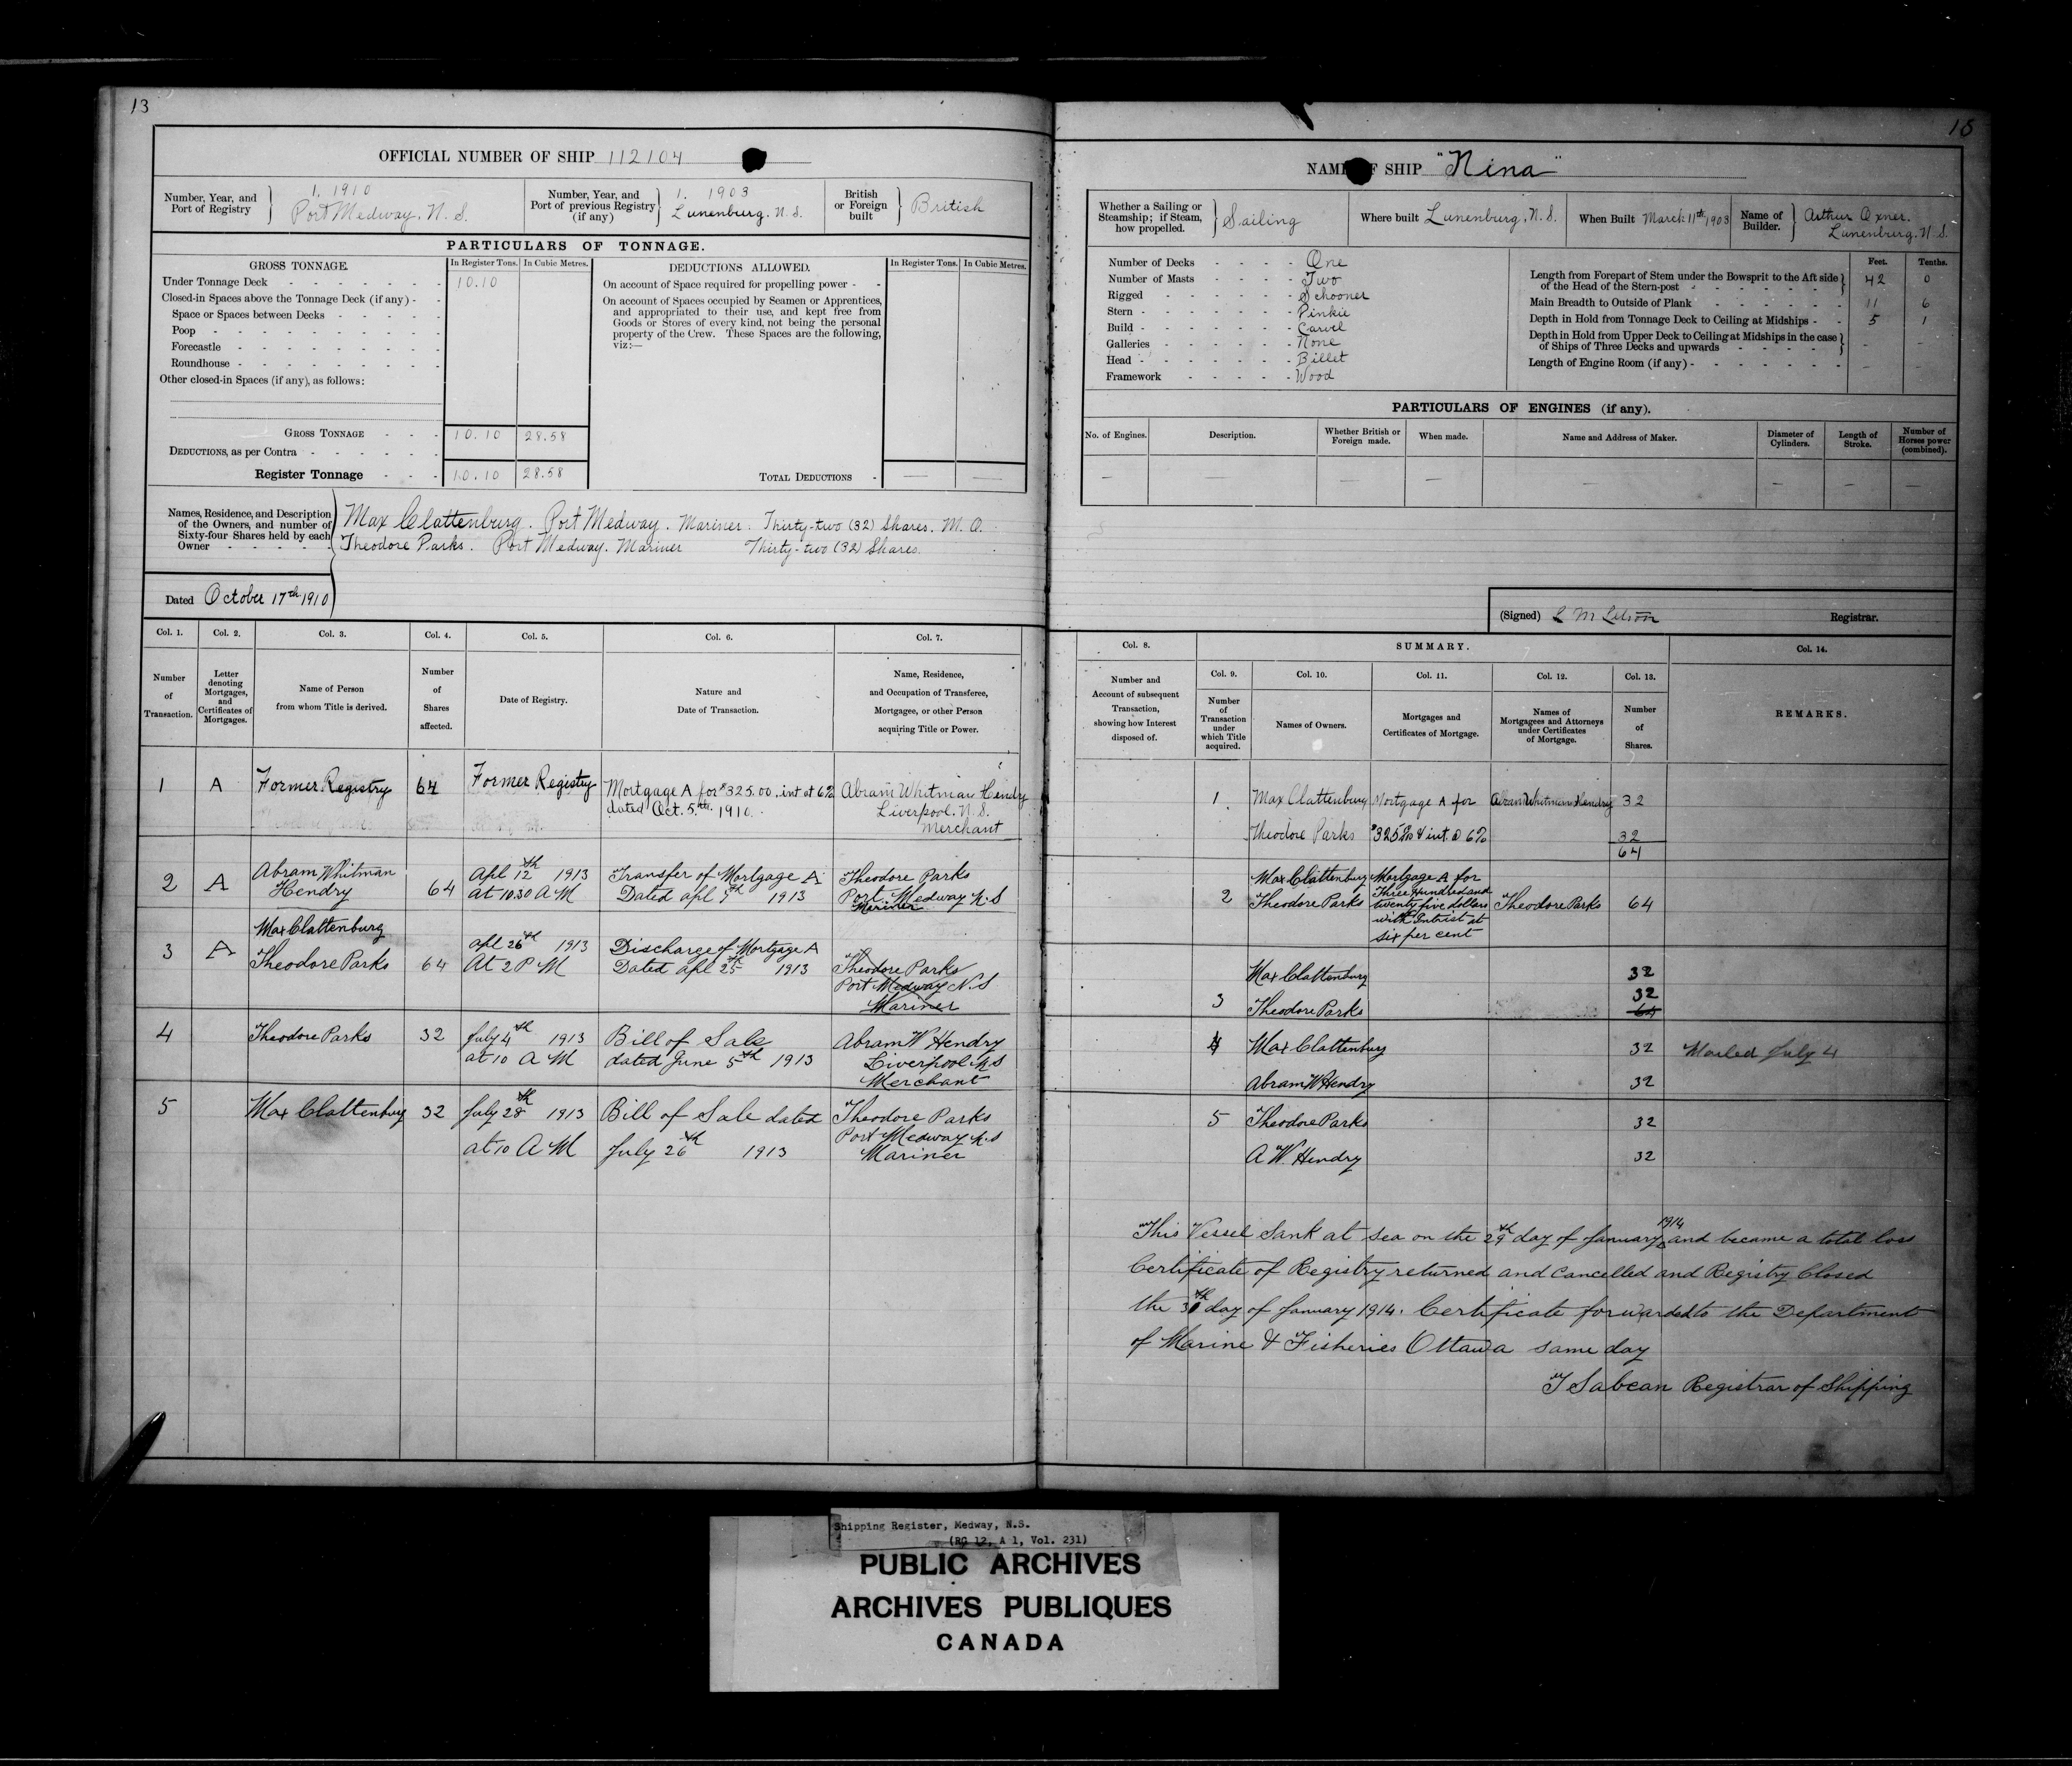 13
OFFICIAL NUMBER OF SHIP 112104
Number, Year, and Port of Registry } 1. 1910 Port Medway, N. S.
Number, Year, and Port of previous Registry (if any) } 1. 1903 Lunenburg, N. S.
British or Foreign built } British
PARTICULARS OF TONNAGE.
GROSS TONNAGE. In Register Tons. In Cubic Metres.
Under Tonnage Deck 10.10
Closed-in Spaces above the Tonnage Deck (if any)
Space or Spaces between Decks
Poop
Forecastle
Roundhouse
Other closed-in Spaces (if any), as follows:
GROSS TONNAGE 10.10 28.58
DEDUCTIONS, as per Contra
Register Tonnage 10.10 28.58
DEDUCTIONS ALLOWED. In Register Tons. In Cubic Metres.
On account of Space required for propelling power
On account of Spaces occupied by Seamen or Apprentices,
and appropriated to their use, and kept free from
Goods or Stores of every kind, not being the personal
property of the Crew. These Spaces are the following,
viz:—
TOTAL DEDUCTIONS — —
Names, Residence, and Description
of the Owners, and number of
Sixty-four Shares held by each
Owner
Max Clattenburg. Port Medway. Mariner. Thirty-two (32) Shares. M. O.
Theodore Parks. Port Medway. Mariner Thirty-two (32) Shares.
Dated October 17th 1910
Col. 1. Col. 2. Col. 3. Col. 4. Col. 5. Col. 6. Col. 7.
Number of Transaction.
Letter denoting Mortgages, and Certificates of Mortgages.
Name of Person from whom Title is derived.
Number of Shares affected.
Date of Registry.
Nature and Date of Transaction.
Name, Residence, and Occupation of Transferee, Mortgagee, or other Person acquiring Title or Power.
1 A Former Registry 64 Former Registry Mortgage A for $325.00. int at 6% Abram Whitman Hendry
dated Oct. 5th 1910. Liverpool. N. S.
Merchant
2 A Abram Whitman Hendry 64 Apl 12th 1913 at 10.30 A M Transfer of Mortgage A Theodore Parks
Dated apl 9th 1913 Port Medway N.S
Mariner
3 A Max Clattenburg
Theodore Parks 64 apl 26th 1913 At 2 P M Discharge of Mortgage A
Dated apl 25th 1913 Theodore Parks
Port Medway N.S
Mariner
4 Theodore Parks 32 July 4th 1913 at 10 A M Bill of Sale Abram W Hendry
dated June 5th 1913 Liverpool N.S
Merchant
5 Max Clattenburg 32 July 28th 1913 Bill of Sale dated Theodore Parks
at 10 A M July 26th 1913 Port Medway N.S
Mariner
NAME OF SHIP "Nina"
Whether a Sailing or Steamship; if Steam, how propelled. } Sailing
Where built Lunenburg, N. S.
When Built March 11th 1903
Name of Builder. } Arthur Oxner. Lunenburg. N. S.
Number of Decks One
Number of Masts Two
Rigged Schooner
Stern Pinkie
Build Carvel
Galleries None
Head Billet
Framework Wood
Feet. Tenths.
Length from Forepart of Stem under the Bowsprit to the Aft side
of the Head of the Stern-post 42 0
Main Breadth to Outside of Plank 11 6
Depth in Hold from Tonnage Deck to Ceiling at Midships 5 1
Depth in Hold from Upper Deck to Ceiling at Midships in the case
of Ships of Three Decks and upwards - -
Length of Engine Room (if any) - -
PARTICULARS OF ENGINES (if any).
No. of Engines. Description. Whether British or Foreign made. When made. Name and Address of Maker. Diameter of Cylinders. Length of Stroke. Number of Horses power (combined).
— — — — — — — —
(Signed) L M Letson Registrar.
Col. 8. SUMMARY. Col. 14.
Col. 9. Col. 10. Col. 11. Col. 12. Col. 13.
Number and Account of subsequent Transaction, showing how Interest disposed of.
Number of Transaction under which Title acquired.
Names of Owners.
Mortgages and Certificates of Mortgage.
Names of Mortgagees and Attorneys under Certificates of Mortgage.
Number of Shares.
REMARKS.
1. Max Clattenburg Mortgage A for Abram Whitman Hendry 32
Theodore Parks $325 00/100 & int. @ 6% 32
64
Max Clattenburg Mortgage A for
2 Theodore Parks Three Hundred and twenty five dollars Theodore Parks 64
with Intrist at
six per cent
Max Clattenburg 32
3 Theodore Parks 32
64
4 Max Clattenburg 32 Mailed July 4
Abram W Hendry 32
5 Theodore Parks 32
A W. Hendry 32
This Vessel Sank at sea on the 29th day of January 1914 and became a total loss
Certificate of Registry returned and Cancelled and Registry Closed
the 30th day of January 1914. Certificate forwarded to the Department
of Marine & Fisheries Ottawa same day
T Sabean Registrar of Shipping
Shipping Register, Medway, N.S.
(RG 12, A 1, Vol. 231)
PUBLIC ARCHIVES
ARCHIVES PUBLIQUES
CANADA